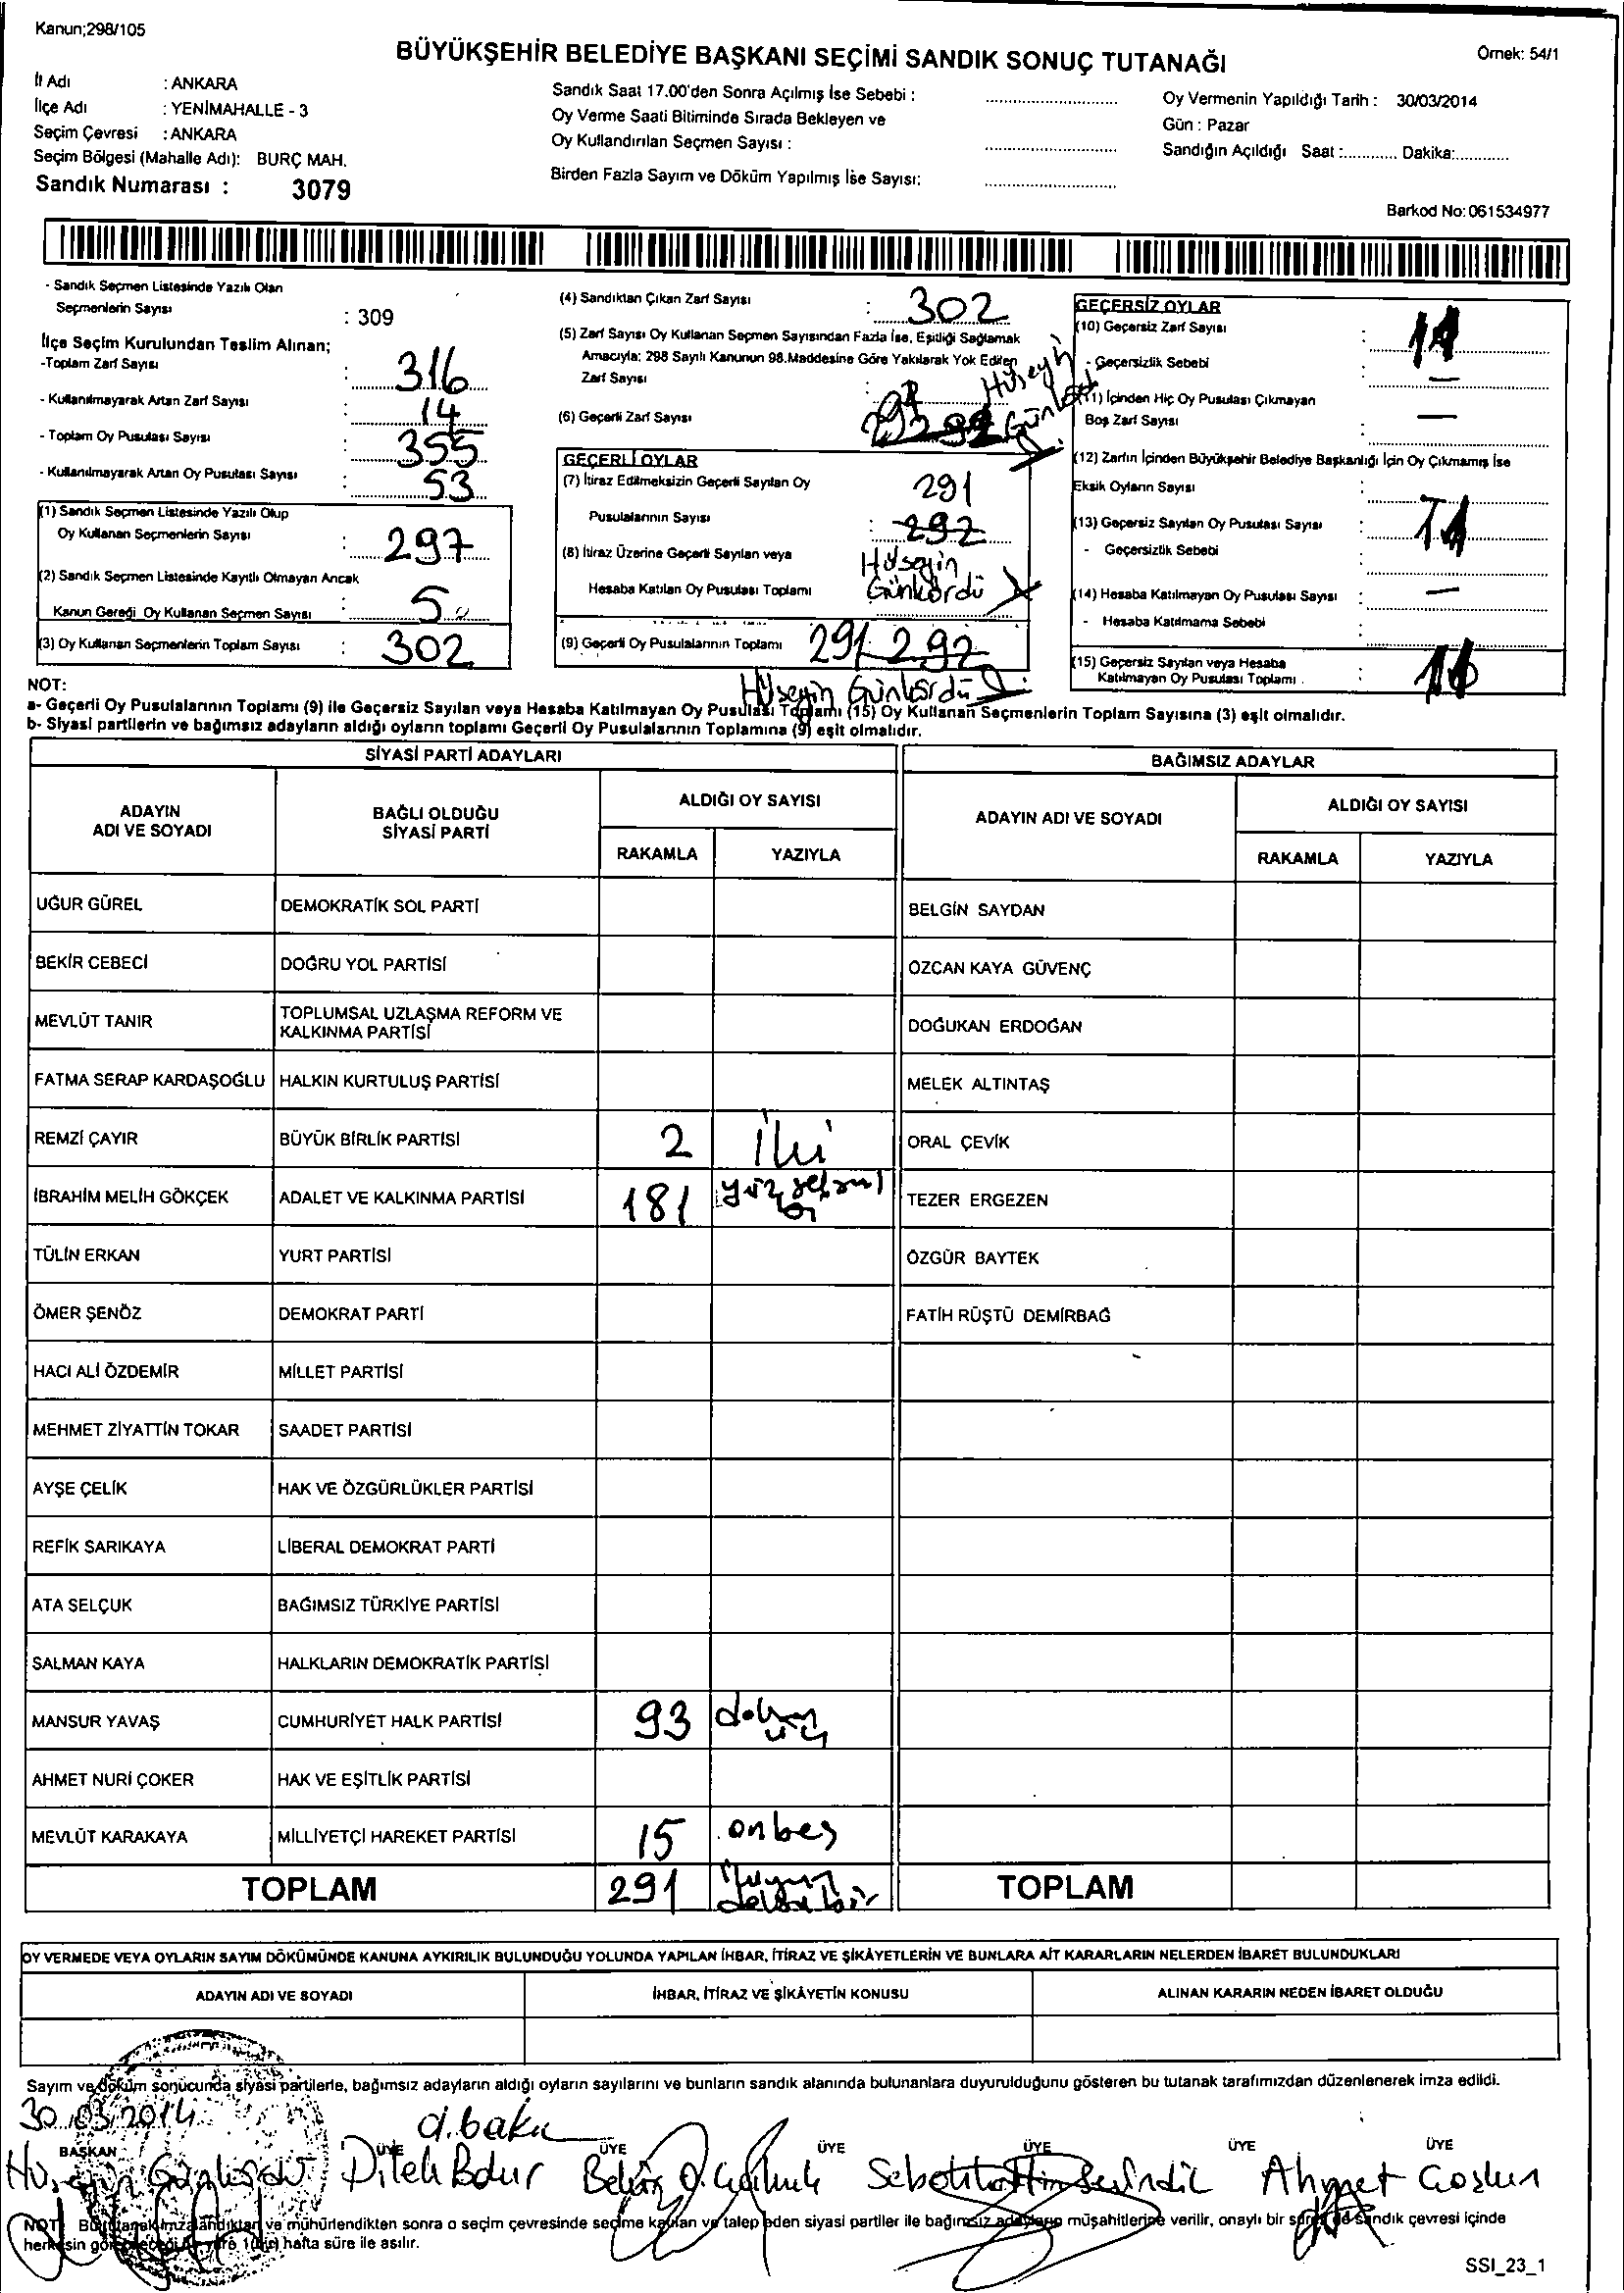 Kanun;298/105
BÜYÜKŞEHİR BELEDİYE BAŞKANI SEÇİMİ SANDIK SONUÇ TUTANAĞI
Örnek: 54/1
İl Adı : ANKARA
İlçe Adı : YENİMAHALLE - 3
Seçim Çevresi : ANKARA
Seçim Bölgesi (Mahalle Adı): BURÇ MAH.
Sandık Numarası : 3079
Sandık Saat 17.00'den Sonra Açılmış İse Sebebi :
Oy Verme Saati Bitiminde Sırada Bekleyen ve
Oy Kullandırılan Seçmen Sayısı :
Birden Fazla Sayım ve Döküm Yapılmış İse Sayısı:
Oy Vermenin Yapıldığı Tarih : 30/03/2014
Gün : Pazar
Sandığın Açıldığı Saat :............ Dakika:............
Barkod No: 061534977
- Sandık Seçmen Listesinde Yazılı Olan
Seçmenlerin Sayısı : 309
İlçe Seçim Kurulundan Teslim Alınan;
-Toplam Zarf Sayısı : 316
- Kullanılmayarak Artan Zarf Sayısı : 14
- Toplam Oy Pusulası Sayısı : 355
- Kullanılmayarak Artan Oy Pusulası Sayısı : 53
(1) Sandık Seçmen Listesinde Yazılı Olup
Oy Kullanan Seçmenlerin Sayısı : 297
(2) Sandık Seçmen Listesinde Kayıtlı Olmayan Ancak
Kanun Gereği Oy Kullanan Seçmen Sayısı : 5
(3) Oy Kullanan Seçmenlerin Toplam Sayısı : 302
(4) Sandıktan Çıkan Zarf Sayısı : 302
(5) Zarf Sayısı Oy Kullanan Seçmen Sayısından Fazla İse, Eşitliği Sağlamak
Amacıyla; 298 Sayılı Kanunun 98.Maddesine Göre Yakılarak Yok Edilen
Zarf Sayısı :
(6) Geçerli Zarf Sayısı
Hüseyin Günkördü
GEÇERLİ OYLAR
(7) İtiraz Edilmeksizin Geçerli Sayılan Oy 291
Pusulalarının Sayısı : 292
(8) İtiraz Üzerine Geçerli Sayılan veya Hüseyin
Hesaba Katılan Oy Pusulası Toplamı Günkördü
(9) Geçerli Oy Pusulalarının Toplamı 291 292
Hüseyin Günkördü
GEÇERSİZ OYLAR
(10) Geçersiz Zarf Sayısı : 11
- Geçersizlik Sebebi : —
(11) İçinden Hiç Oy Pusulası Çıkmayan
Boş Zarf Sayısı : —
(12) Zarfın İçinden Büyükşehir Belediye Başkanlığı İçin Oy Çıkmamış İse
Eksik Oyların Sayısı :
(13) Geçersiz Sayılan Oy Pusulası Sayısı : 11
- Geçersizlik Sebebi :
(14) Hesaba Katılmayan Oy Pusulası Sayısı : —
- Hesaba Katılmama Sebebi :
(15) Geçersiz Sayılan veya Hesaba
Katılmayan Oy Pusulası Toplamı :
NOT:
a- Geçerli Oy Pusulalarının Toplamı (9) ile Geçersiz Sayılan veya Hesaba Katılmayan Oy Pusulası Toplamı (15) Oy Kullanan Seçmenlerin Toplam Sayısına (3) eşit olmalıdır.
b- Siyasi partilerin ve bağımsız adayların aldığı oyların toplamı Geçerli Oy Pusulalarının Toplamına (9) eşit olmalıdır.
SİYASİ PARTİ ADAYLARI
ADAYIN ADI VE SOYADI
BAĞLI OLDUĞU SİYASİ PARTİ
ALDIĞI OY SAYISI
RAKAMLA YAZIYLA
UĞUR GÜREL DEMOKRATİK SOL PARTİ
BEKİR CEBECİ DOĞRU YOL PARTİSİ
MEVLÜT TANIR TOPLUMSAL UZLAŞMA REFORM VE KALKINMA PARTİSİ
FATMA SERAP KARDAŞOĞLU HALKIN KURTULUŞ PARTİSİ
REMZİ ÇAYIR BÜYÜK BİRLİK PARTİSİ 2 iki
İBRAHİM MELİH GÖKÇEK ADALET VE KALKINMA PARTİSİ 181 yüzseksen bi
TÜLİN ERKAN YURT PARTİSİ
ÖMER ŞENÖZ DEMOKRAT PARTİ
HACI ALİ ÖZDEMİR MİLLET PARTİSİ
MEHMET ZİYATTİN TOKAR SAADET PARTİSİ
AYŞE ÇELİK HAK VE ÖZGÜRLÜKLER PARTİSİ
REFİK SARIKAYA LİBERAL DEMOKRAT PARTİ
ATA SELÇUK BAĞIMSIZ TÜRKİYE PARTİSİ
SALMAN KAYA HALKLARIN DEMOKRATİK PARTİSİ
MANSUR YAVAŞ CUMHURİYET HALK PARTİSİ 93 doksan üç
AHMET NURİ ÇOKER HAK VE EŞİTLİK PARTİSİ
MEVLÜT KARAKAYA MİLLİYETÇİ HAREKET PARTİSİ 15 onbeş
TOPLAM 291 ikiyüz doksanbir
BAĞIMSIZ ADAYLAR
ADAYIN ADI VE SOYADI
ALDIĞI OY SAYISI
RAKAMLA YAZIYLA
BELGİN SAYDAN
ÖZCAN KAYA GÜVENÇ
DOĞUKAN ERDOĞAN
MELEK ALTINTAŞ
ORAL ÇEVİK
TEZER ERGEZEN
ÖZGÜR BAYTEK
FATİH RÜŞTÜ DEMİRBAĞ
TOPLAM
OY VERMEDE VEYA OYLARIN SAYIM DÖKÜMÜNDE KANUNA AYKIRILIK BULUNDUĞU YOLUNDA YAPILAN İHBAR, İTİRAZ VE ŞİKÂYETLERİN VE BUNLARA AİT KARARLARIN NELERDEN İBARET BULUNDUKLARI
ADAYIN ADI VE SOYADI İHBAR, İTİRAZ VE ŞİKÂYETİN KONUSU ALINAN KARARIN NEDEN İBARET OLDUĞU
Sayım ve döküm sonucunda siyasi partilerle, bağımsız adayların aldığı oyların sayılarını ve bunların sandık alanında bulunanlara duyurulduğunu gösteren bu tutanak tarafımızdan düzenlenerek imza edildi.
30.03.2014
BAŞKAN ÜYE ÜYE ÜYE ÜYE ÜYE ÜYE
Hüseyin Günkördü Dilek Bolur Sebahattin Ahmet Coşkun
NOT: Bu tutanak imzalandıktan ve mühürlendikten sonra o seçim çevresinde seçime katılan ve talep eden siyasi partiler ile bağımsız adayların müşahitlerine verilir, onaylı bir sureti de sandık çevresi içinde
herkesin göreceği bir yere 1(bir) hafta süre ile asılır.
SSI_23_1